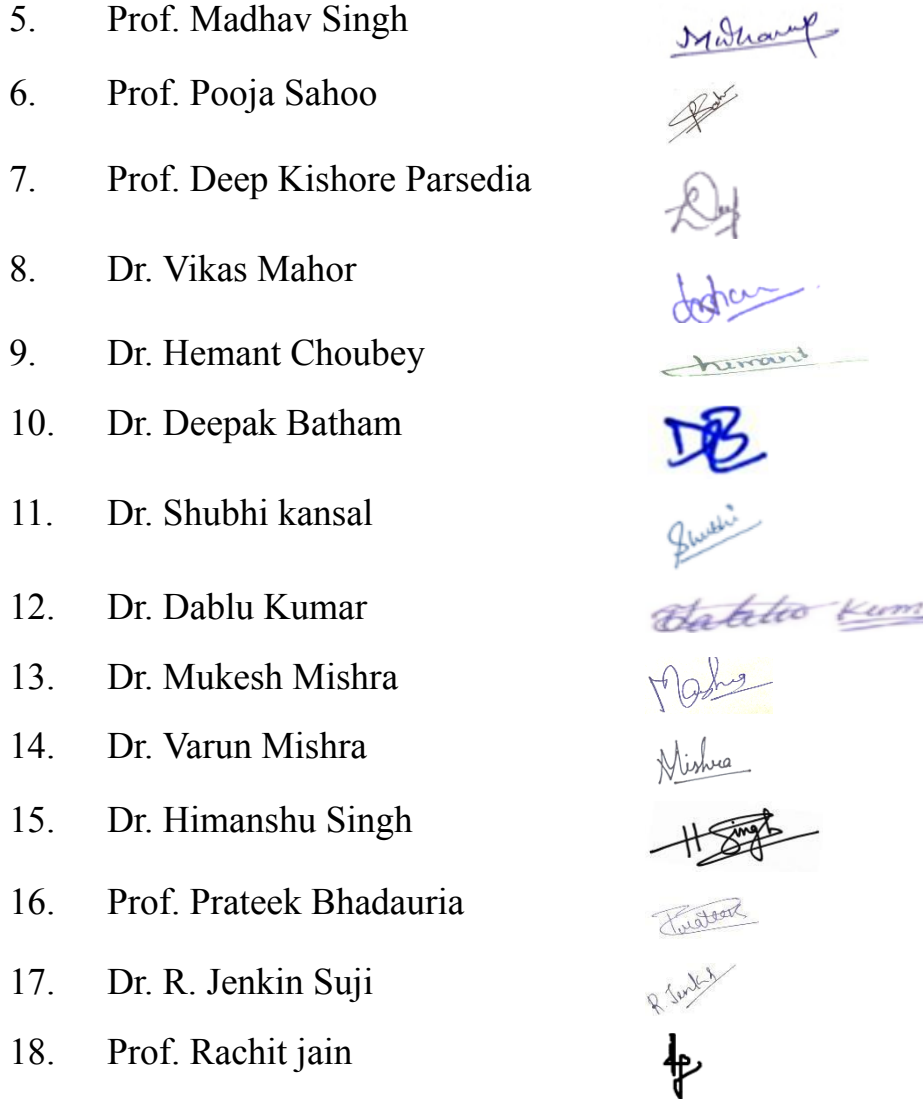 5. Prof. Madhav Singh Madhav
6. Prof. Pooja Sahoo
7. Prof. Deep Kishore Parsedia Deep
8. Dr. Vikas Mahor
9. Dr. Hemant Choubey hemant
10. Dr. Deepak Batham DB
11. Dr. Shubhi kansal Shubhi
12. Dr. Dablu Kumar
13. Dr. Mukesh Mishra
14. Dr. Varun Mishra Mishra
15. Dr. Himanshu Singh H Singh
16. Prof. Prateek Bhadauria Prateek
17. Dr. R. Jenkin Suji R. Jenkin
18. Prof. Rachit jain